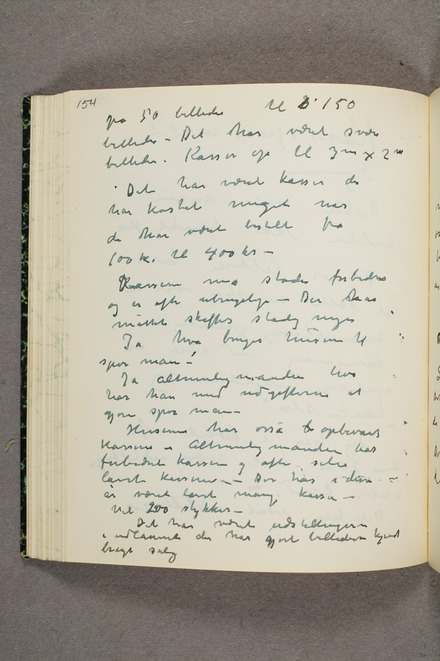 154
paa 50 billeder til 150
billeder – Det har været svær
billeder. Kasser op til 3m x 2m
Det har været kasser der
har kostet meget naar
de har været bestilt fra
100 k. til 400 kr –
Kasserne maa stadig forbedres
og er ofte ubrugelige – Der
maatte skaffes stadig nye
Ja hva bruges husene til
spør man –!
Ja almindelig manden hos
har han med udgifterne at
gjøre spør man –
Husene har også opbevaret
kasserne – Almindelig manden har
forbedret kasserne og ofte selv
lavet kasserne – Der har i
år været lavet mang kasser –
200 stykker –
Det har været udstillingerne
i udlandet der har gjort billederne kjendt
bragt salg